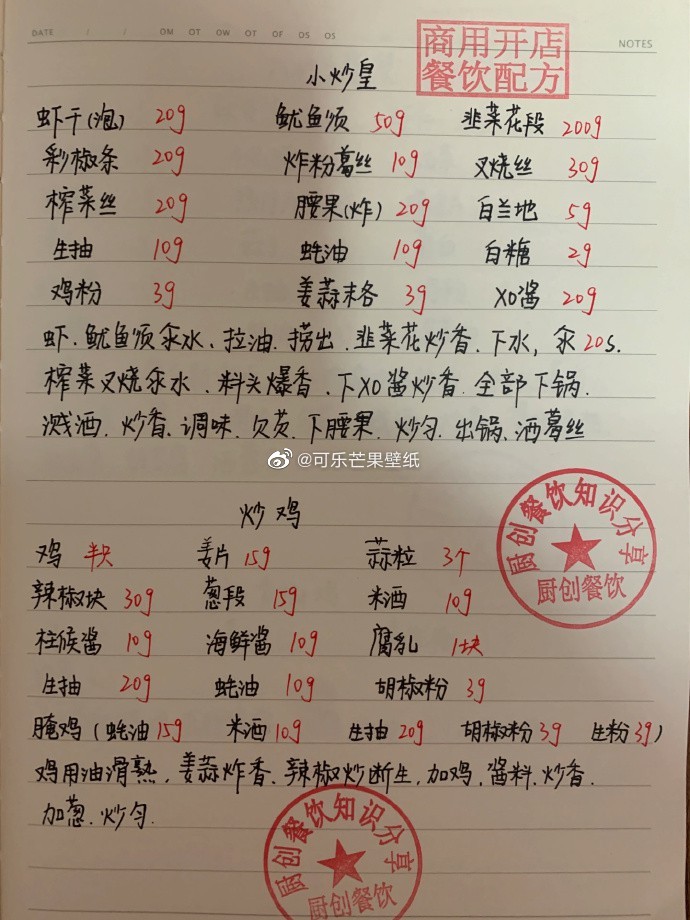 DATE / / OM OT OW OT OF OS OS
NOTES
商用开店
餐饮配方
小炒皇
虾干(泡) 20g 鱿鱼须 50g 韭菜花段 200g
彩椒条 20g 炸粉葛丝 10g 叉烧丝 30g
榨菜丝 20g 腰果(炸) 20g 白兰地 5g
生抽 10g 蚝油 10g 白糖 2g
鸡粉 3g 姜蒜末各 3g XO酱 20g
虾、鱿鱼须汆水、拉油、捞出、韭菜花炒香、下水,汆20s.
榨菜叉烧汆水、料头爆香、下XO酱炒香、全部下锅.
溅酒、炒香、调味、欠芡、下腰果、炒匀、出锅、洒葛丝
@可乐芒果壁纸
炒鸡
鸡 半只 姜片 15g 蒜粒 3个
辣椒块 30g 葱段 15g 米酒 10g
柱候酱 10g 海鲜酱 10g 腐乳 1块
生抽 20g 蚝油 10g 胡椒粉 3g
腌鸡(蚝油15g 米酒10g 生抽20g 胡椒粉3g 生粉3g)
鸡用油滑熟,姜蒜炸香、辣椒炒断生、加鸡,酱料、炒香.
加葱、炒匀.
厨创餐饮知识分享
厨创餐饮
厨创餐饮知识分享
厨创餐饮